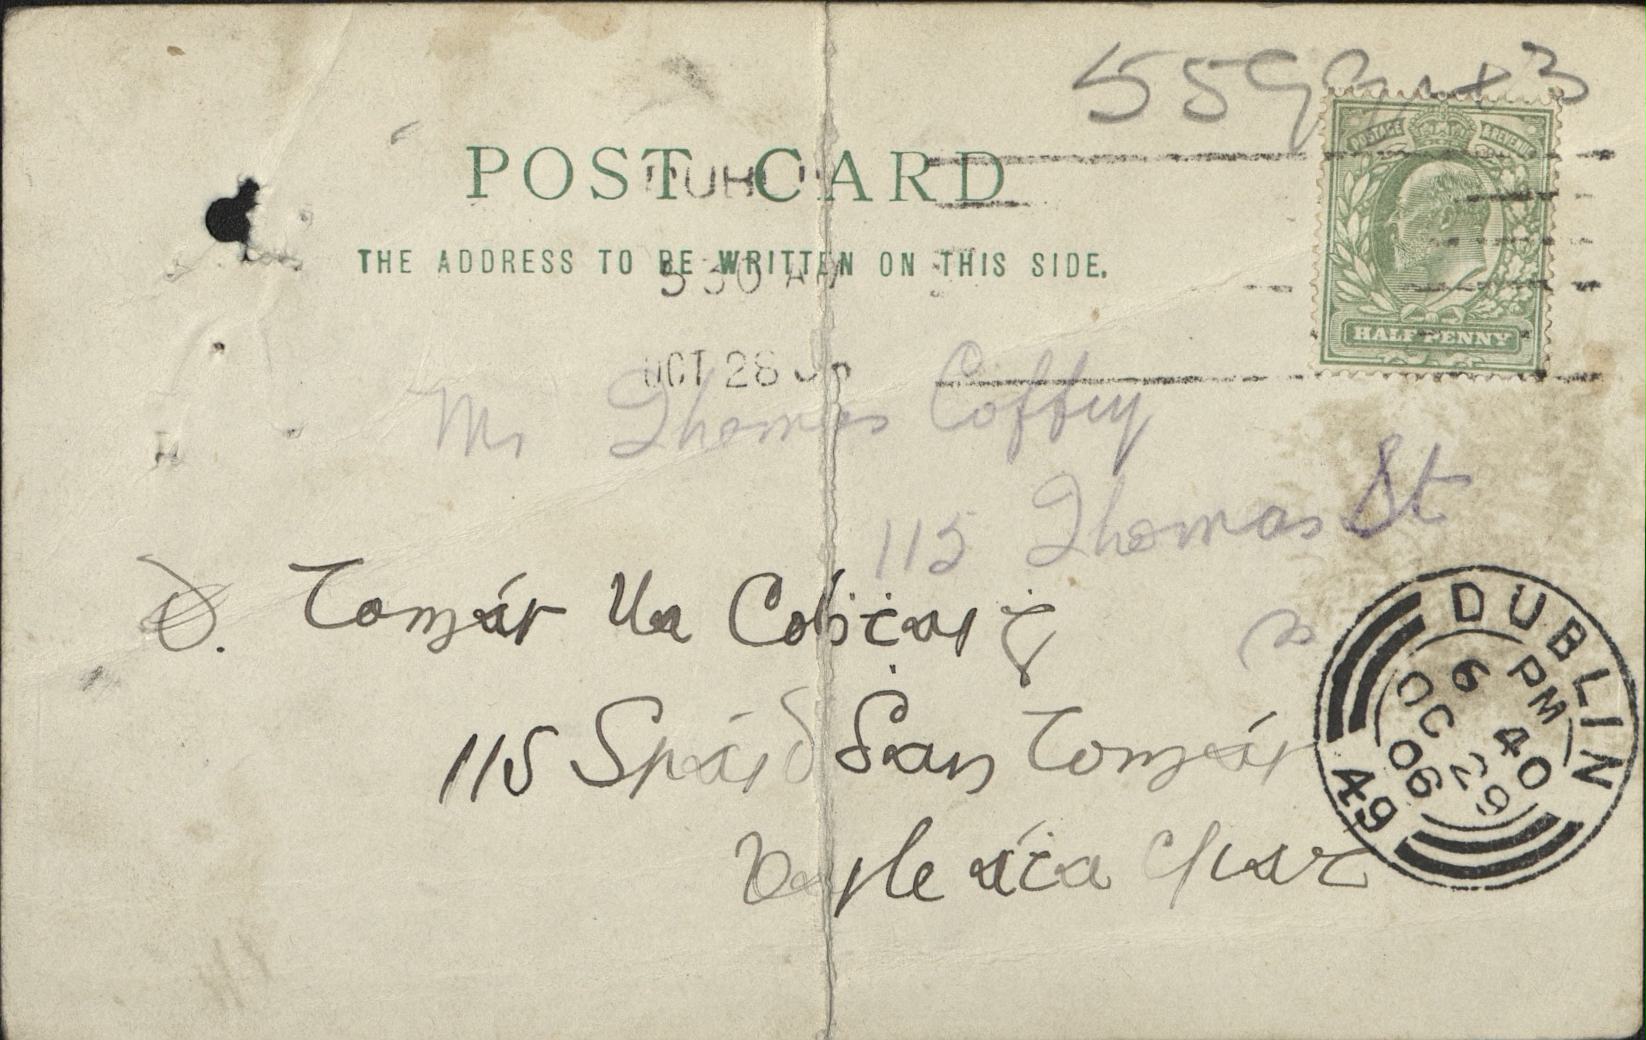 POST CARD
THE ADDRESS TO BE WRITTEN ON THIS SIDE.
POSTAGE & REVENUE
HALF PENNY
5 30
OCT 28
Mr Thomas Coffey
115 Thomas St
Tomár Ua Cobṫaiġ
115 Sráid San Tomáis
Bayle áṫa Cliaṫ
DUBLIN
6 40 PM
OC 29
06
49